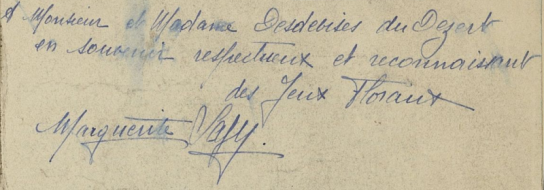 A Monsieur et Madame Desdevises du Dezert
en souvenir respectueux et reconnaissant
des Jeux Floraux
Marguerite